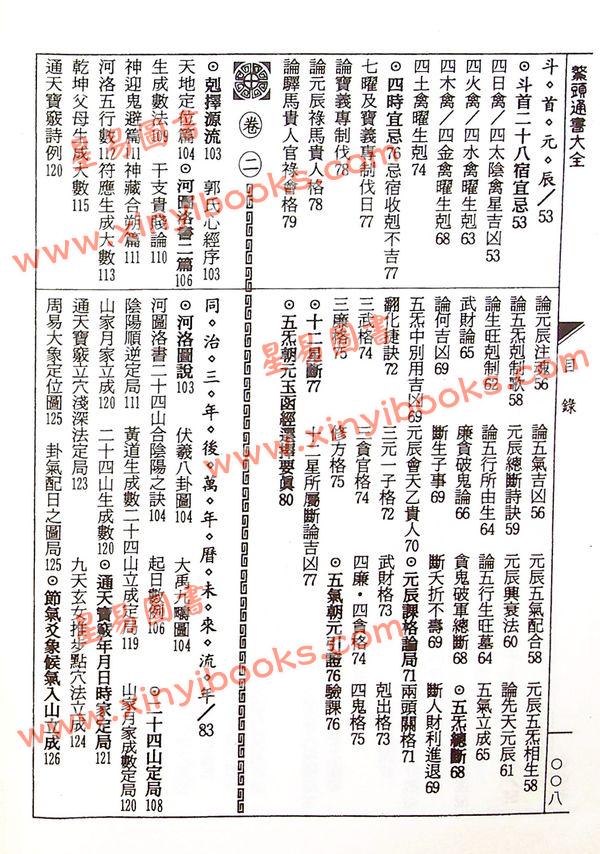 鰲頭通書大全
目錄
〇〇八
斗◇首◇元◇辰/53
⊙斗首二十八宿宜忌53
四日禽/四太陰禽星吉凶53
四火禽/四水禽曜生剋63
四木禽/四金禽曜生剋68
四土禽曜生剋74
⊙四時宜忌76 忌宿收剋不吉77
七曜及寶義專制伐日77
論寶義專制伐78
論元辰祿馬貴人格78
論驛馬貴人官祿會格79
卷二
⊙剋擇源流103 郭氏心經序103
天地定位篇104 ⊙河圖洛書二篇106
生成數法109 干支貴賤論110
神迎鬼避篇111 神藏合朔篇111
河洛五行數111 符應生成大數113
乾坤父母生成大數115
通天寶竅詩例120
論元辰注魂56 論五氣吉凶56 元辰五氣配合58 元辰五炁相生58
論五炁剋制歌58 元辰總斷詩訣59 元辰興衰法60 論先天元辰61
論生旺剋制62 論五行所由生64 論五行生旺墓64 五氣立成65
武財論65 廉貪破鬼論66 貪鬼破軍總斷68 ⊙五炁總斷68
論何吉凶69 斷生子事69 斷夭折不壽69 斷人財利進退69
五炁中別用吉凶69 元辰會天乙貴人70 ⊙元辰課格論局71 兩頭關格71
翻化捷訣72 三元一子格72 武財格73 剋出格73
三武格74 三貪官格74 四廉·四貪格74 四鬼格75
三廉格75 修方格75 ⊙五氣朝元引證76 驗課76
⊙十二星斷77 十二星所屬斷論吉凶77
⊙五炁朝元玉函經選擇要真80
同◇治◇三◇年◇後◇萬◇年◇曆◇未◇來◇流◇年/83
⊙河洛圖說103 伏羲八卦圖104 大禹九疇圖104
河圖洛書二十四山合陰陽之訣104 起日數例106 ⊙二十四山定局108
陰陽順逆定局111 黃道生成數二十四山立成定局119 山家月家成數定局120
山家月家立成120 二十四山生成數120 ⊙通天寶竅年月日時家定局121
通天寶竅立穴淺深法定局123 九天玄女推步點穴法立成124
周易大象定位圖125 卦氣配日之圖局125 ⊙節氣爻象候氣入山立成126
星易圖書
www.xinyibooks.com
星易圖書
www.xinyibooks.com
星易圖書
www.xinyibooks.com